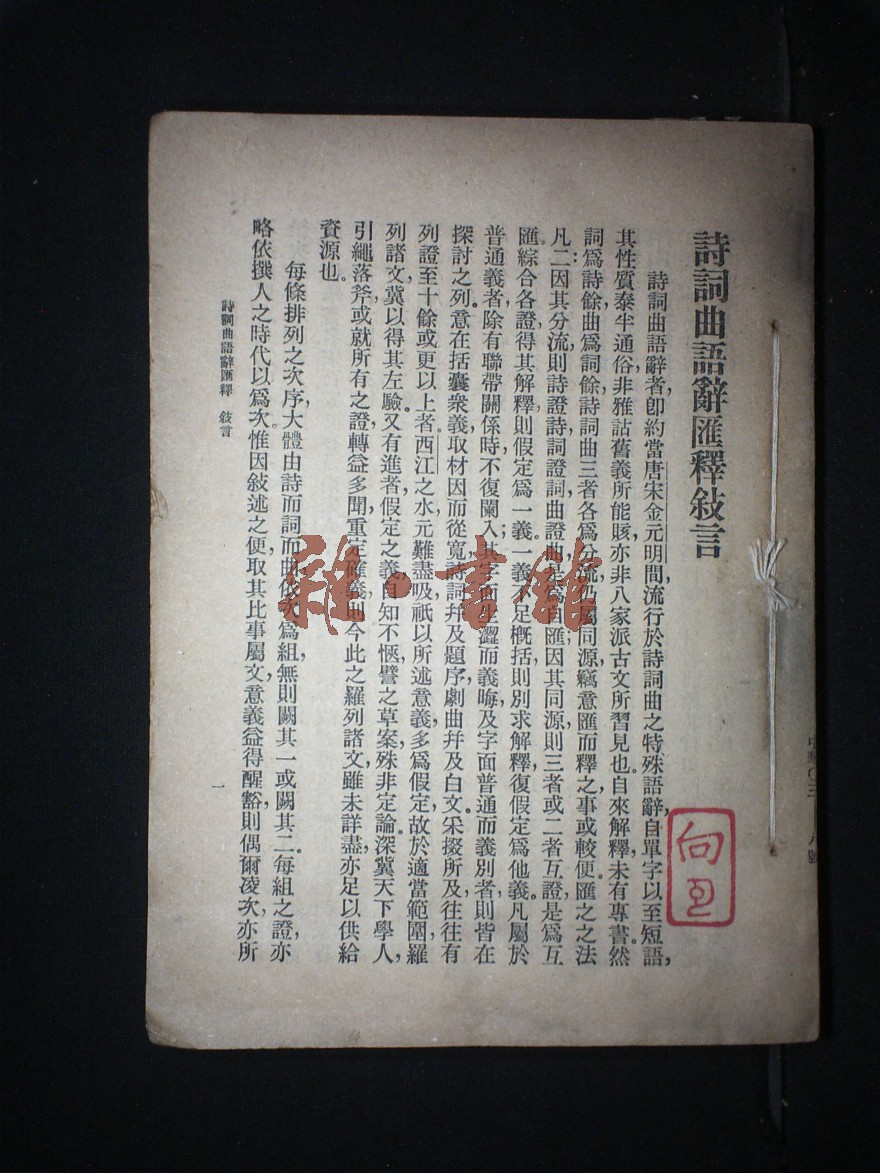 詩詞曲語辭匯釋敍言
詩詞曲語辭者，卽約當唐宋金元明間，流行於詩詞曲之特殊語辭，自單字以至短語，
其性質泰半通俗，非雅詁舊義所能賅，亦非八家派古文所習見也。自來解釋，未有專書。然
詞爲詩餘，曲爲詞餘，詩詞曲三者各爲分流，仍屬同源，竊意匯而釋之，事或較便。匯之之法
凡二：因其分流，則詩證詩，詞證詞，曲證曲，是爲自匯；因其同源，則三者或二者互證，是爲互
匯。綜合各證，得其解釋，則假定爲一義；一義不足概括，則別求解釋，復假定爲他義。凡屬於
普通義者，除有聯帶關係時不復闌入；其字面生澀而義晦，及字面普通而義別者，則皆在
探討之列。意在括囊衆義，取材因而從寬，詩詞幷及題序，劇曲幷及白文。采掇所及，往往有
列證至十餘或更以上者，西江之水，元難盡吸，祇以所述意義，多爲假定，故於適當範圍，羅
列諸文，冀以得其左驗。又有進者，假定之義，自知不愜，譬之草案，殊非定論。深冀天下學人，
引繩落斧，或就所有之證，轉益多聞，重定確義，則今此之羅列諸文，雖未詳盡，亦足以供給
資源也。
每條排列之次序，大體由詩而詞而曲，依次爲組，無則闕其一或闕其二。每組之證，亦
略依撰人之時代以爲次。惟因敍述之便，取其比事屬文，意義益得醒豁，則偶爾凌次，亦所
詩詞曲語辭匯釋　敍言
一
雜·書館